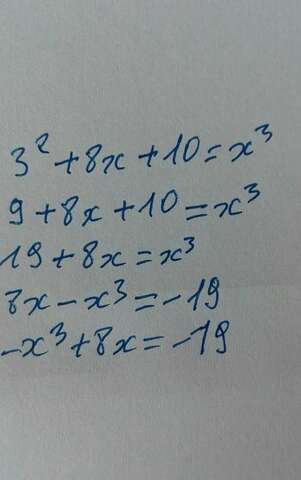 3² + 8x + 10 = x³
9 + 8x + 10 = x³
19 + 8x = x³
8x - x³ = -19
-x³ + 8x = -19